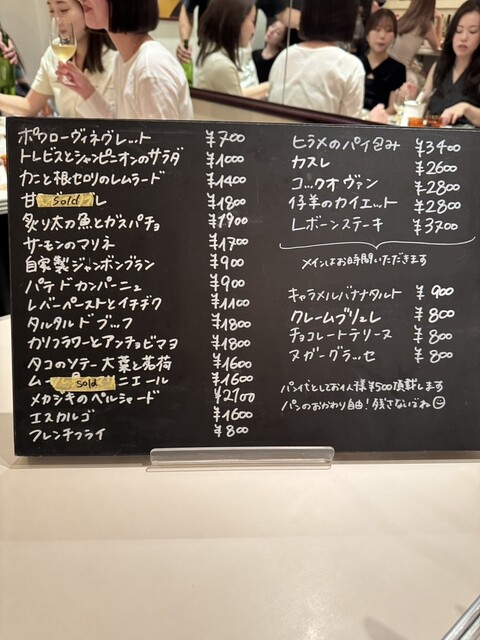 ポワローヴィネグレット ¥700
トレビスとシャンピニオンのサラダ ¥1000
カニと根セロリのレムラード ¥1400
甘 sold レ ¥1800
炙り太刀魚とガスパチョ ¥1900
サーモンのマリネ ¥1700
自家製ジャンボンブラン ¥900
パテドカンパーニュ ¥900
レバーペーストとイチヂク ¥1100
タルタルドブッフ ¥1800
カリフラワーとアンチョビマヨ ¥1800
タコのソテー大葉と茗荷 ¥1600
ム sold ニエール ¥1600
メカジキのペルシャード ¥2100
エスカルゴ ¥1600
フレンチフライ ¥800
ヒラメのパイ包み ¥3400
カスレ ¥2600
コックオヴァン ¥2800
仔羊のカイエット ¥2800
Lボーンステーキ ¥3700
メインはお時間いただきます
キャラメルバナナタルト ¥900
クレームブリュレ ¥800
チョコレートテリーヌ ¥800
ヌガーグラッセ ¥800
パン代としてお1人様¥500頂戴します
パンのおかわり自由!残さないでね